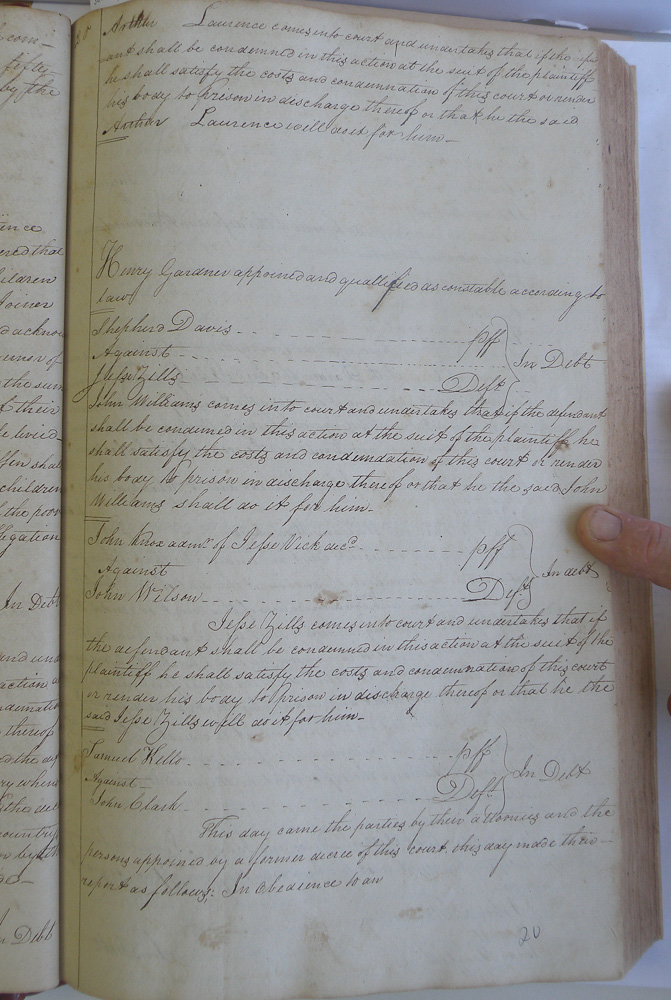 com-
by the
Arthur Laurence comes into court and undertakes that if the
ant shall be condemned in this action at the suit of the plaintiff
he shall satisfy the costs and condemnation of this court or render
his body to prison in discharge thereof or that he the said
Arthur Laurence will do it for him
Henry Gardner appointed and quallified as constable according to
law
Shepherd Davis pff
Against In Debt
Jesse Zills Deft
John Williams comes into court and undertakes that if the defendant
shall be condemned in this action at the suit of the plaintiff he
shall satisfy the costs and condemdation of this court or render
his body to prison in discharge thereof or that he the said John
Williams shall do it for him
John Knox admr of Jesse Vick decd pff
Against In debt
John Wilson Deft
Jesse Zills comes into court and undertakes that if
the defendant shall be condemned in this action at the suit of the
plaintiff he shall satisfy the costs and condemnation of this court
or render his body to prison in discharge thereof or that he the
said Jesse Zills will do it for him
Samuel Kello pff
Against In Debt
John Clark Deft
This day came the parties by their attornies and the
persons appointed by a former decree of this court this day made their
report as follows: In Obedience to an
20
ered that
children
Joiner
acknow
the sum
their
children
the poor
In Debt
action
thereof
Debt